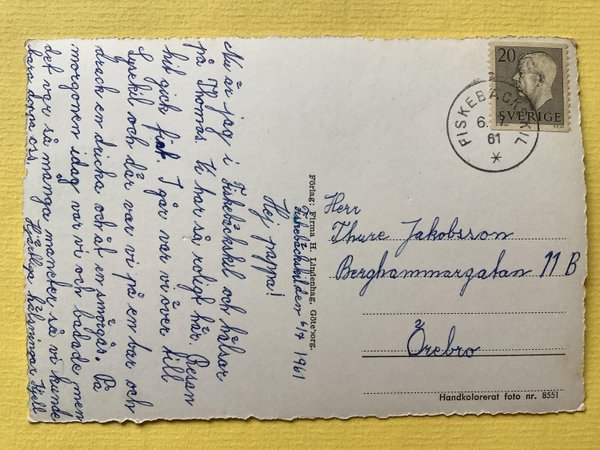 Fiskebäckskil den 6/7 1961
Hej pappa!
Nu är jag i Fiskebäckskil och hälsar
på Thomas. Vi har så roligt här. Resan
hit gick fint. I går var vi över till
Lysekil och där var vi på en bar och
drack en dricka och åt en smörgås. På
morgonen idag var vi och badade men
det var så många maneter så vi kunde
bara doppa oss. Hjärtliga hälsningar Kjell
Förlag: Firma H. Lindenhag, Göteborg.
20
SVERIGE
FISKEBÄCKSKIL
6. 7.
61
Herr
Thure Jakobsson
Berghammargatan 11 B
Örebro
Handkolorerat foto nr. 8551